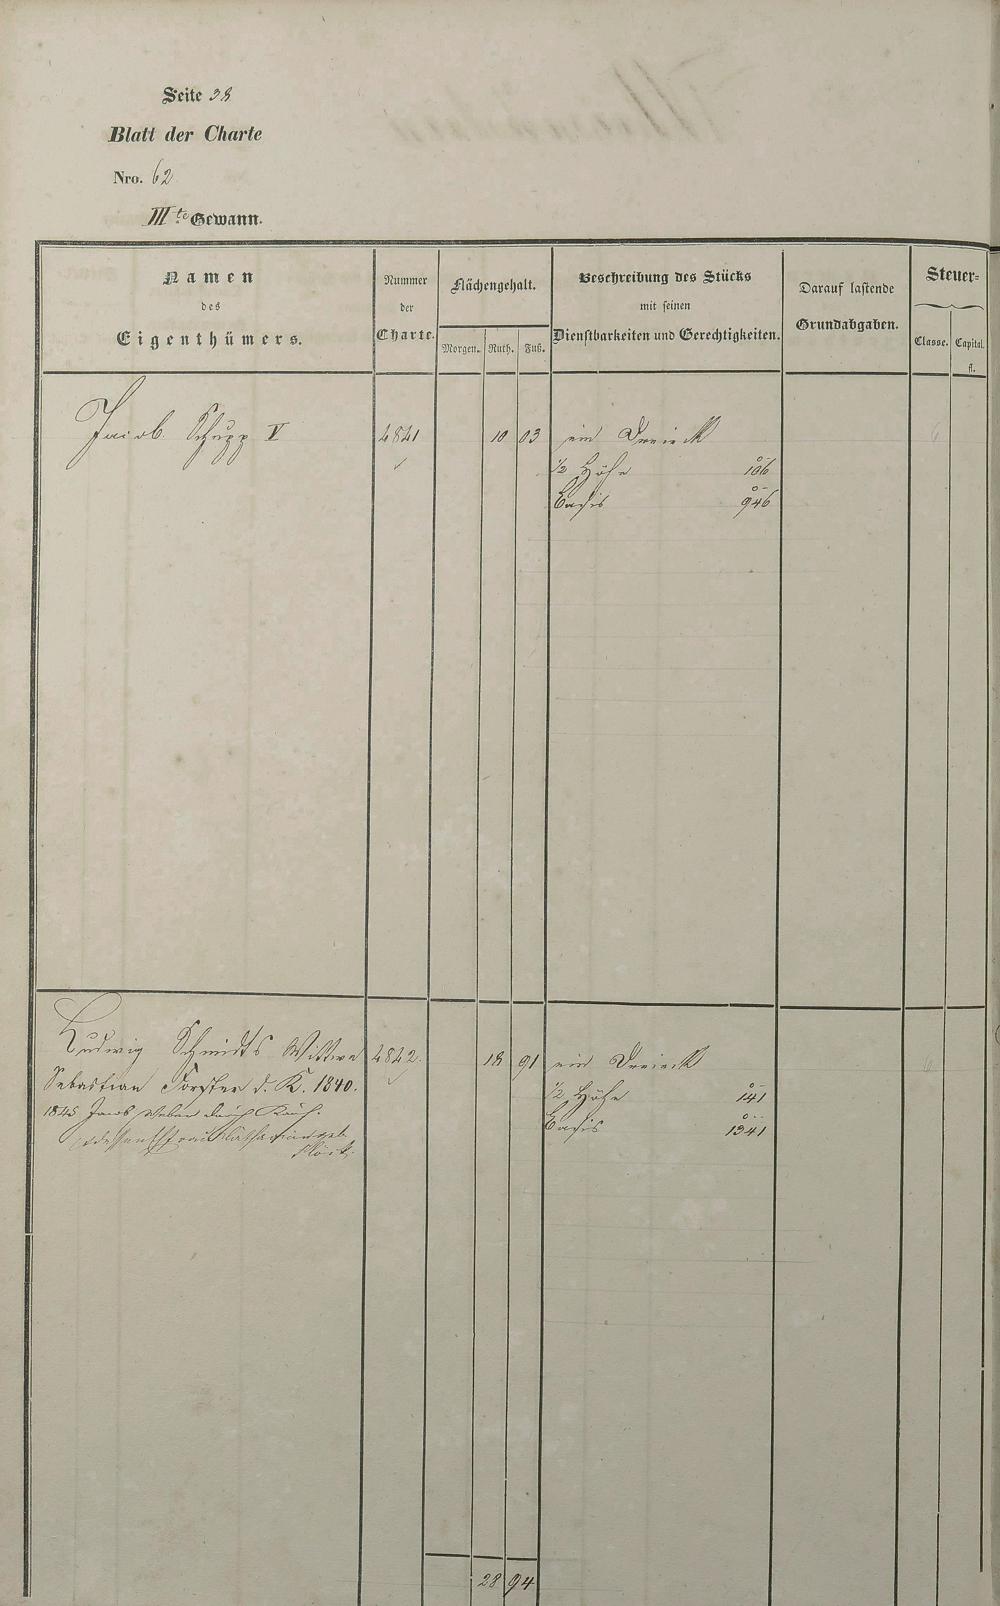 Seite 38
Blatt der Charte
Nro. 62
III te Gewann.
Namen des Eigenthümers.
Nummer der Charte.
Flächengehalt.
Morgen. Ruth. Fuß.
Beschreibung des Stücks mit seinen Dienstbarkeiten und Gerechtigkeiten.
Darauf lastende Grundabgaben.
Steuer-
Classe. Capital. fl.
Jacob Schupp V 4841 10 03 ein Dreieck 6
1/2 Höhe 106
Basis 946
Ludwig Schmidts Wittwe 4842. 18 91 ein Dreieck 6
Sebastian Forster d. K. 1840. 1/2 Höhe 141
1845 Jacob Weber durch Kauf. Basis 1341
28 94